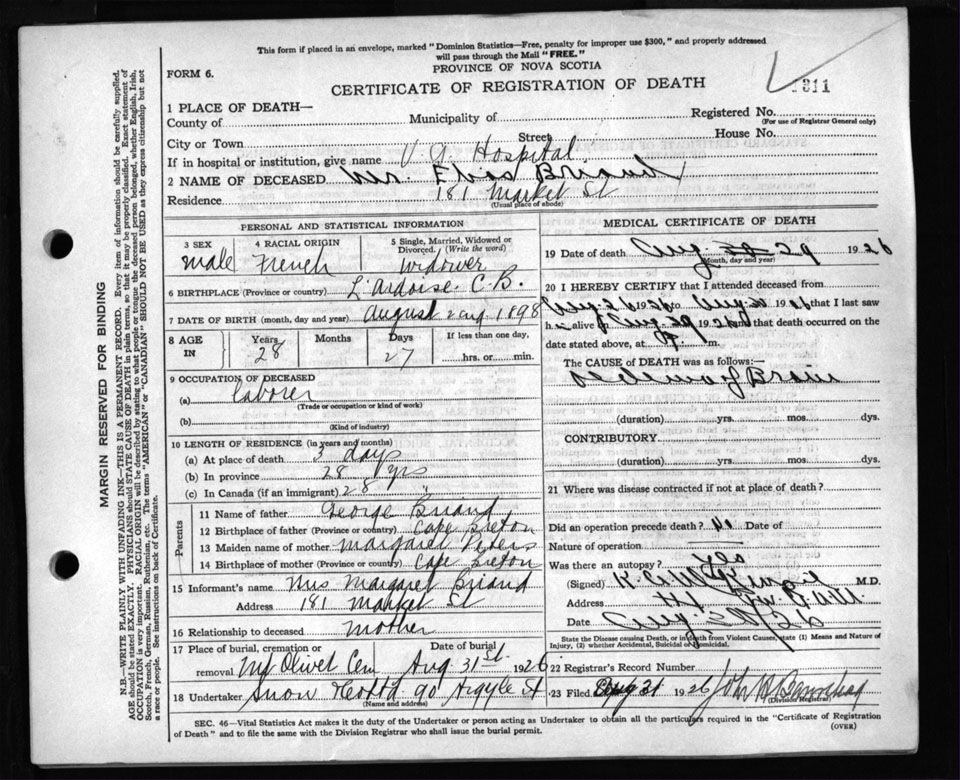 This form if placed in an envelope, marked "Dominion Statistics—Free, penalty for improper use $300," and properly addressed
will pass through the Mail "FREE."
PROVINCE OF NOVA SCOTIA
FORM 6.
CERTIFICATE OF REGISTRATION OF DEATH
1811
1 PLACE OF DEATH—
County of Municipality of Registered No.
(For use of Registrar General only)
City or Town Street House No.
If in hospital or institution, give name V. G. Hospital.
2 NAME OF DECEASED Briand
Residence 181 Market St
(Usual place of abode)
MARGIN RESERVED FOR BINDING
N.B.—WRITE PLAINLY WITH UNFADING INK—THIS IS A PERMANENT RECORD. Every item of information should be carefully supplied.
AGE should be stated EXACTLY. PHYSICIANS should STATE CAUSE OF DEATH in plain terms, so that it may be properly classified. Exact statement of
OCCUPATION is very important. RACIAL ORIGIN will be described by stating to what people or tongue the deceased person belonged, whether English, Irish,
Scotch, French, German, Russian, Ruthenian, etc. The terms "AMERICAN" or "CANADIAN" SHOULD NOT BE USED as they express citizenship but not
a race or people. See instructions on back of Certificate.
PERSONAL AND STATISTICAL INFORMATION
3 SEX
male
4 RACIAL ORIGIN
French
5 Single, Married, Widowed or
Divorced. (Write the word)
widower
6 BIRTHPLACE (Province or country) L'Ardoise C.B.
7 DATE OF BIRTH (month, day and year) August 2 1898
8 AGE
IN
Years
28
Months
Days
27
If less than one day,
hrs. or min.
9 OCCUPATION OF DECEASED
(a) laborer
(Trade or occupation or kind of work)
(b)
(Kind of industry)
10 LENGTH OF RESIDENCE (in years and months)
(a) At place of death 3 days
(b) In province 28 yrs
(c) In Canada (if an immigrant) 28 "
Parents
11 Name of father George Briand
12 Birthplace of father (Province or country) Cape Breton
13 Maiden name of mother Margaret Peters
14 Birthplace of mother (Province or country) Cape Breton
15 Informant's name Mrs Margaret Briand
Address 181 Market St
16 Relationship to deceased mother
17 Place of burial, cremation or Date of burial
removal Mt Olivet Cem Aug 31st 1926
18 Undertaker Snow 90 Argyle St
(Name and address)
MEDICAL CERTIFICATE OF DEATH
19 Date of death Aug 29 1926
(Month, day and year)
20 I HEREBY CERTIFY that I attended deceased from
Aug 26 1926 to Aug 1926 that I last saw
h alive Aug 29 1926 and that death occurred on the
date stated above, at m.
The CAUSE of DEATH was as follows:
Oedema of Brain
(duration) yrs. mos. dys.
CONTRIBUTORY
(duration) yrs. mos. dys.
21 Where was disease contracted if not at place of death?
Did an operation precede death? Date of
Nature of operation
Was there an autopsy? Yes
(Signed) M.D.
Address
Date Aug
State the Disease causing Death, or in death from Violent Causes, state (1) Means and Nature of
Injury, (2) whether Accidental, Suicidal or Homicidal.
22 Registrar's Record Number
23 Filed Aug 31 1926 John
(Division Registrar)
SEC. 46—Vital Statistics Act makes it the duty of the Undertaker or person acting as Undertaker to obtain all the particulars required in the "Certificate of Registration
of Death" and to file the same with the Division Registrar who shall issue the burial permit.
(OVER)